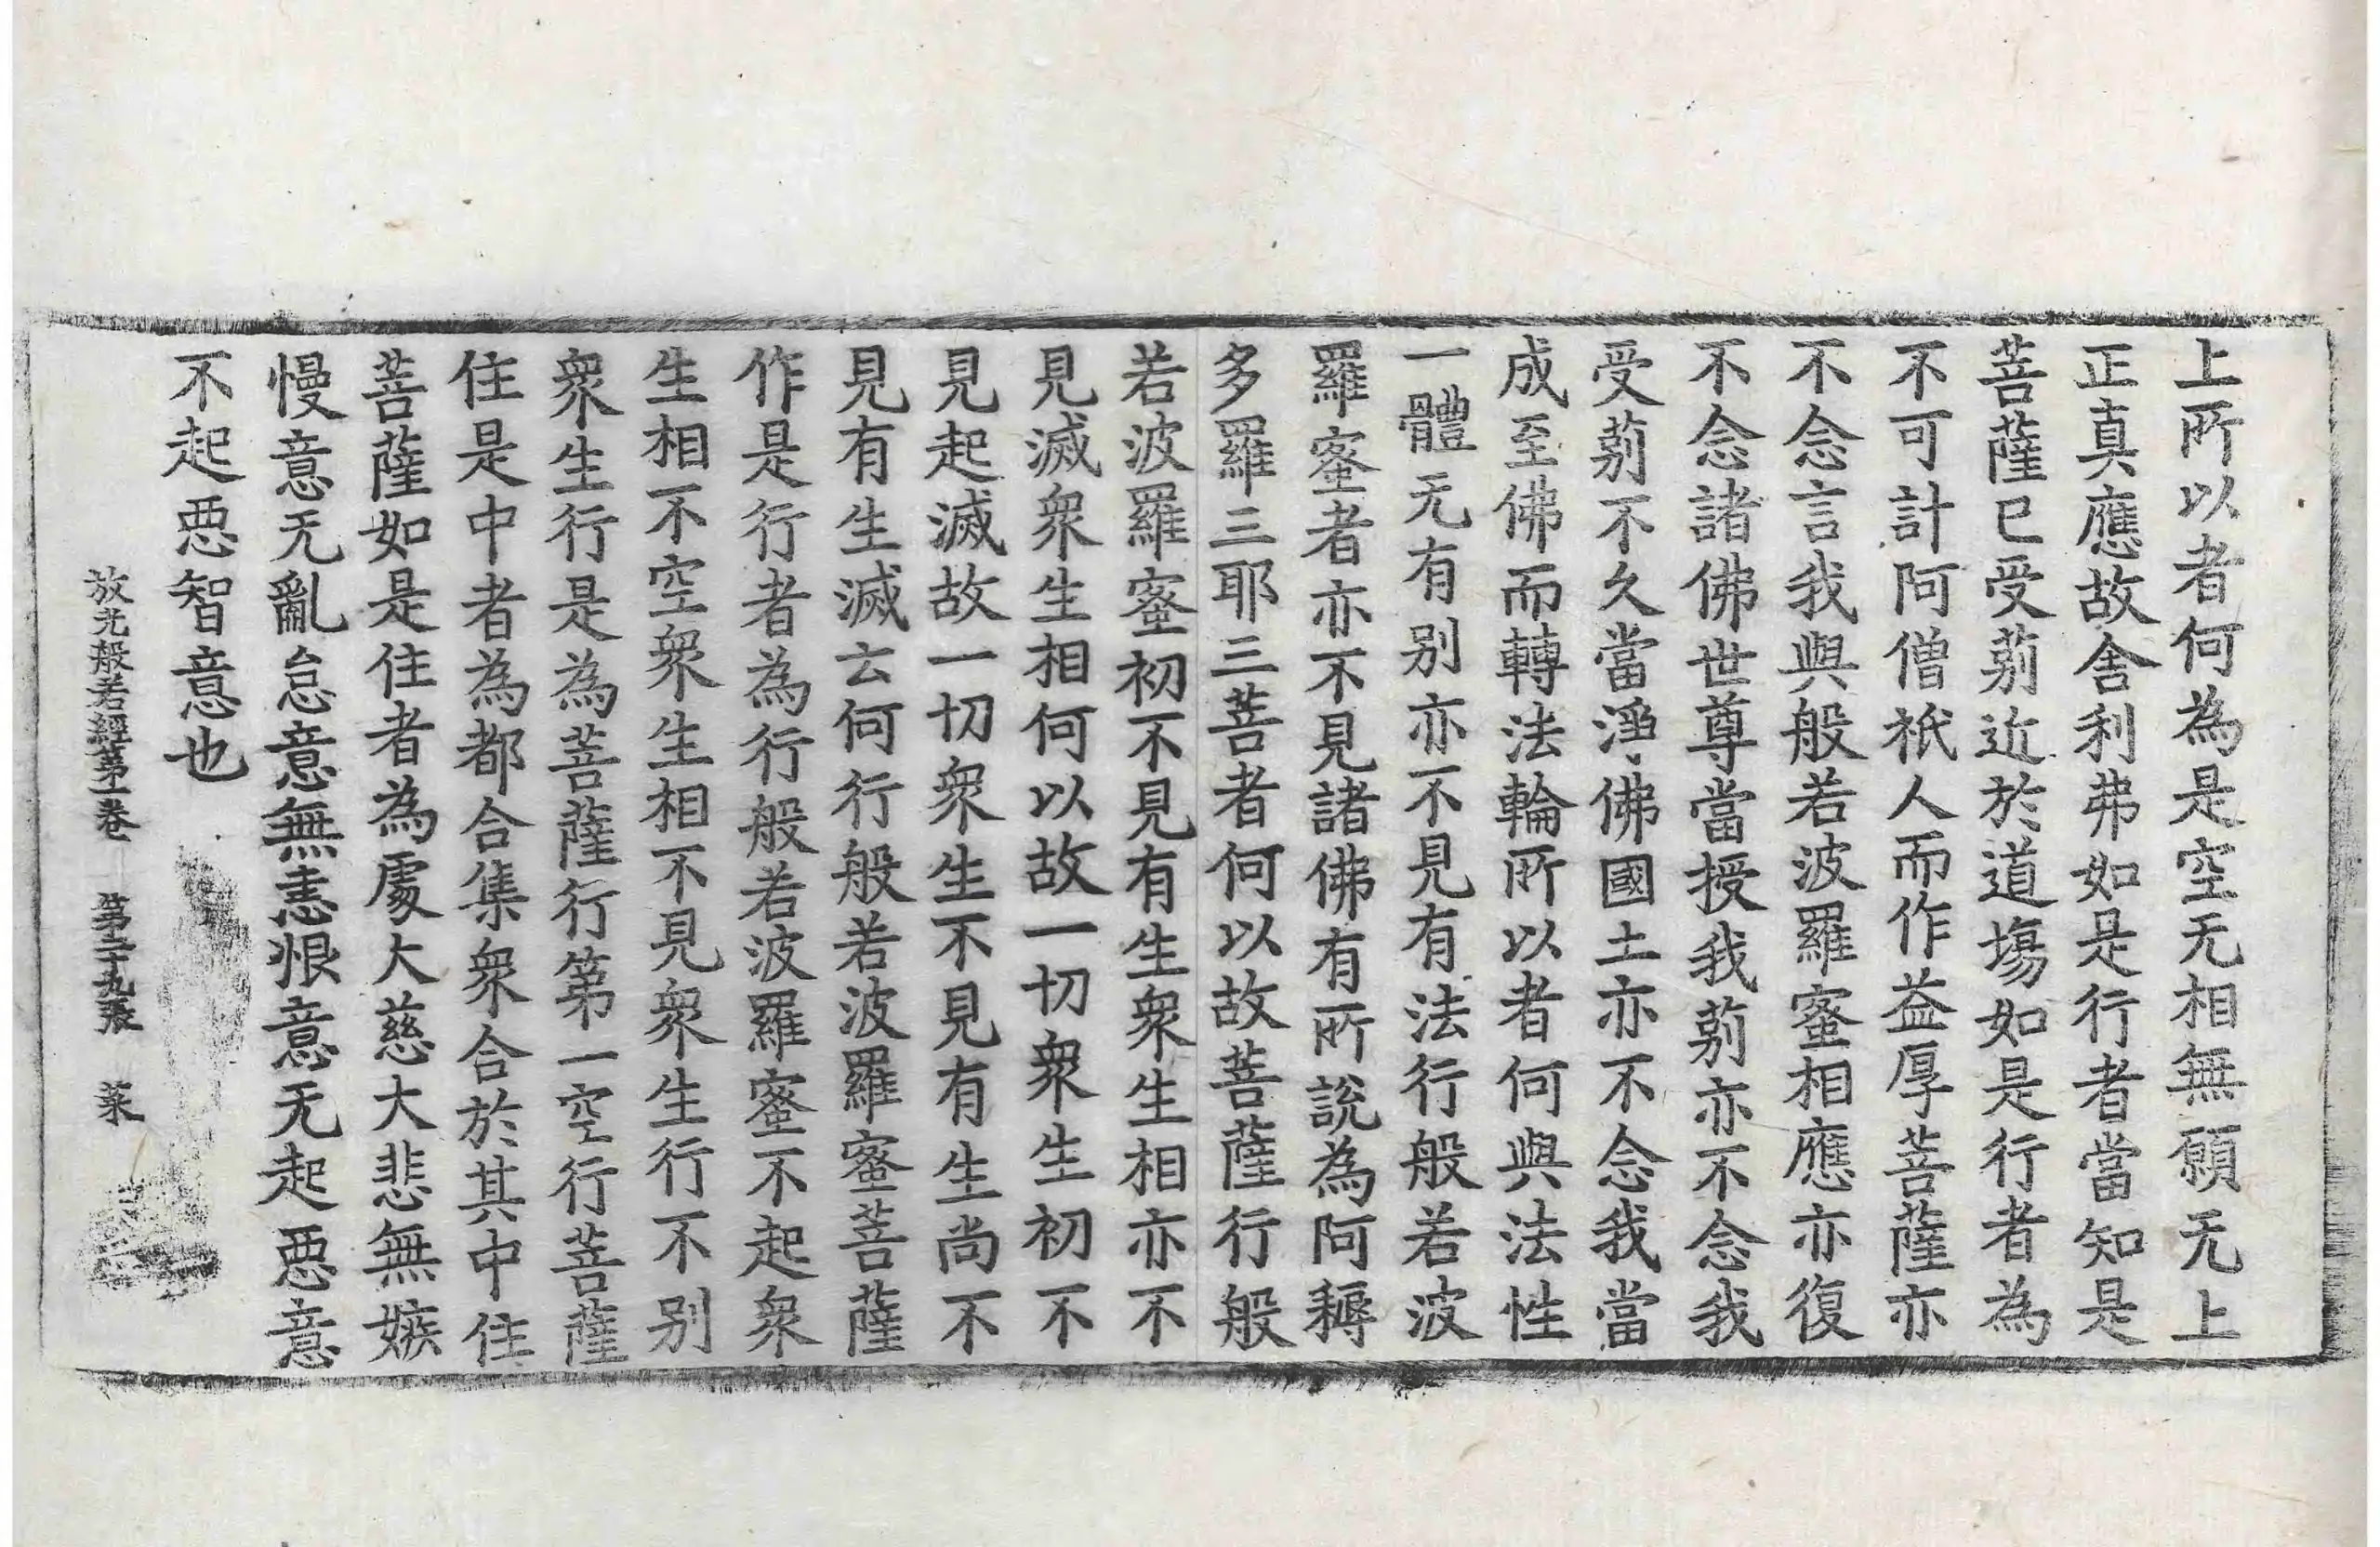 上所以者何為是空无相無願无上
正真應故舍利弗如是行者當知是
菩薩已受莂近於道場如是行者為
不可計阿僧祇人而作益厚菩薩亦
不念言我與般若波羅蜜相應亦復
不念諸佛世尊當授我莂亦不念我
受莂不久當淨佛國土亦不念我當
成至佛而轉法輪所以者何與法性
一體无有别亦不見有法行般若波
羅蜜者亦不見諸佛有所說為阿耨
多羅三耶三菩者何以故菩薩行般
若波羅蜜初不見有生衆生相亦不
見滅衆生相何以故一切衆生初不
見起滅故一切衆生不見有生尚不
見有生滅云何行般若波羅蜜菩薩
作是行者為行般若波羅蜜不起衆
生相不空衆生相不見衆生行不别
衆生行是為菩薩行第一空行菩薩
住是中者為都合集衆合於其中住
菩薩如是住者為處大慈大悲無嫉
慢意无亂怠意無恚恨意无起惡意
不起惡智意也
放光般若經第一卷 第二十九張 菜